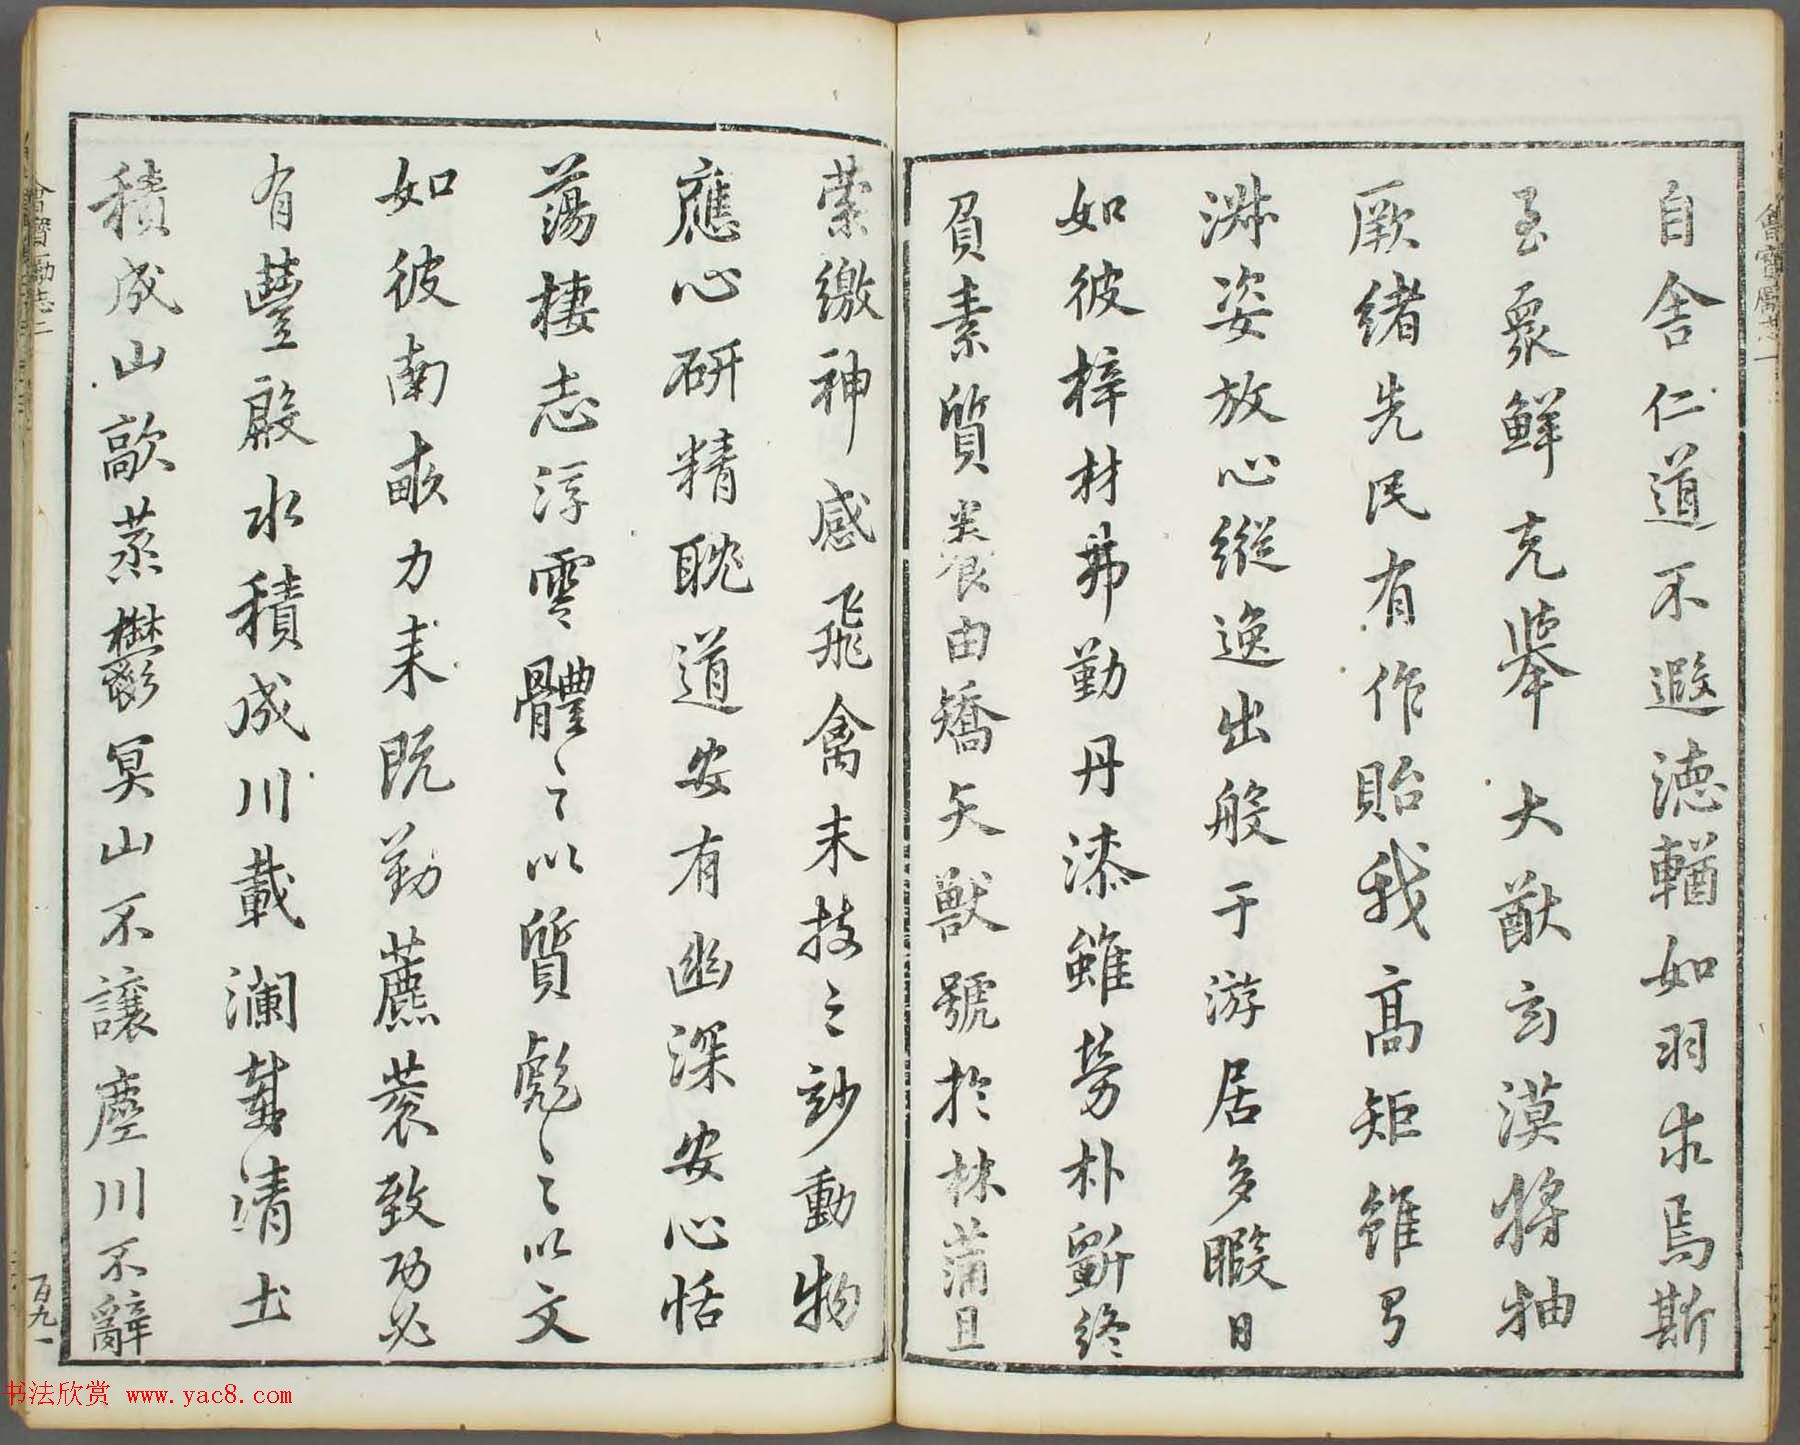 自舍仁道不遐德輶如羽求焉斯
至眾鮮克舉大猷玄漠將抽
厥緒先民有作貽我高矩雖
淑姿放心縱逸出般于游居多暇日
如彼梓材弗勤丹漆雖勞朴斲終
負素質養由矯矢獸號於林蒲且
縈繳神感飛禽末技之妙動物
應心研精耽道安有幽深安心恬
蕩棲志浮雲體之以質彪之以文
如彼南畝力耒既勤藨蓘致功必
有豐殷水積成川載瀾載清土
積成山歊蒸鬱冥山不讓塵川不辭
百九一
书法欣赏 www.yac8.com